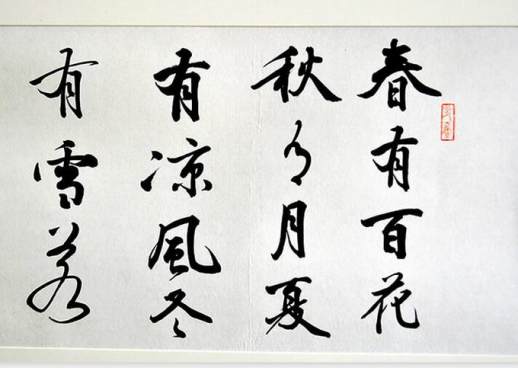 春有百花
秋有月夏
有凉風冬
有雪若